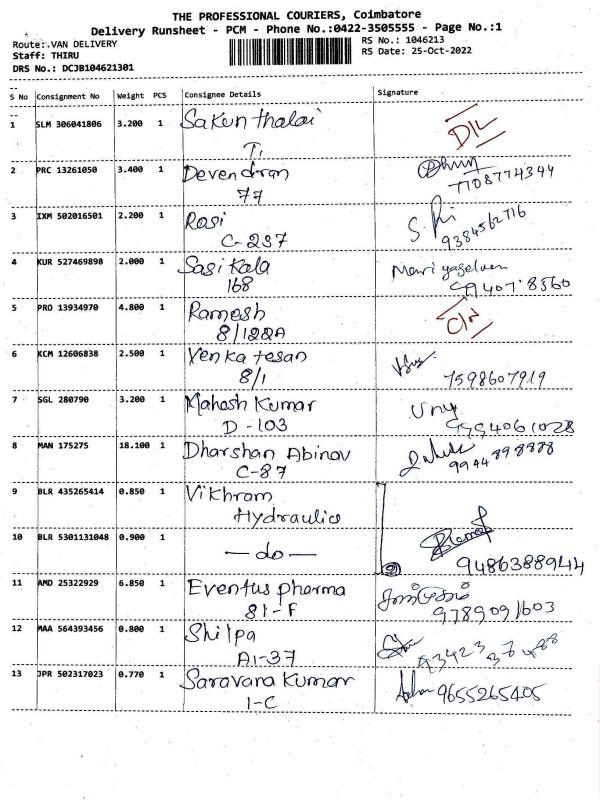 THE PROFESSIONAL COURIERS, Coimbatore
Delivery Runsheet - PCM - Phone No.:0422-3505555 - Page No.:1
Route:.VAN DELIVERY
RS No.: 1046213
Staff: THIRU
RS Date: 25-Oct-2022
DRS No.: DCJB104621301
S No Consignment No Weight PCS Consignee Details Signature
1 SLM 306041806 3.200 1 Sakun thalai
T1
2 PRC 13261050 3.400 1 Devendran 7708774344
77
3 IXM 502016501 2.200 1 Rosi 9384562716
C-237
4 KUR 527469898 2.000 1 Sasi Kala
168
5 PRO 13934970 4.800 1 Ramesh
8/122A
6 KCM 12606838 2.500 1 Venkatesan
8/1 7598607919
7 SGL 280790 3.200 1 Mahesh Kumar
D-103
8 MAN 175275 18.100 1 Dharshan Abinav
C-87 9944898888
9 BLR 435265414 0.850 1 Vikhram
Hydraulics
10 BLR 5301131048 0.900 1
— do — 9486388944
11 AMD 25322929 6.850 1 Eventus pharma
81-F 9789091603
12 MAA 564393456 0.800 1 Shilpa
A1-37
13 JPR 502317023 0.770 1 Saravana Kumar 9655265405
1-C